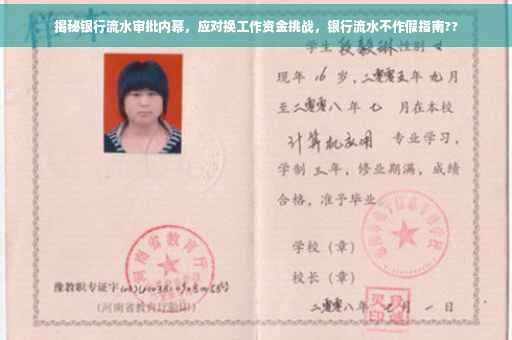 揭秘银行流水审批内幕，应对换工作资金挑战，银行流水不作假指南??
学生 段毅琳 性别 女
现年 16 岁，二零零五年 九月
至二零零八 年 七 月在本校
计算机应用 专业学习，
学制 三 年，修业期满，成绩
合格，准予毕业
学校（章）
校长（章）
二零零八年 月 一 日
河南省教育厅
豫教职专证字
（河南省教育厅验印）